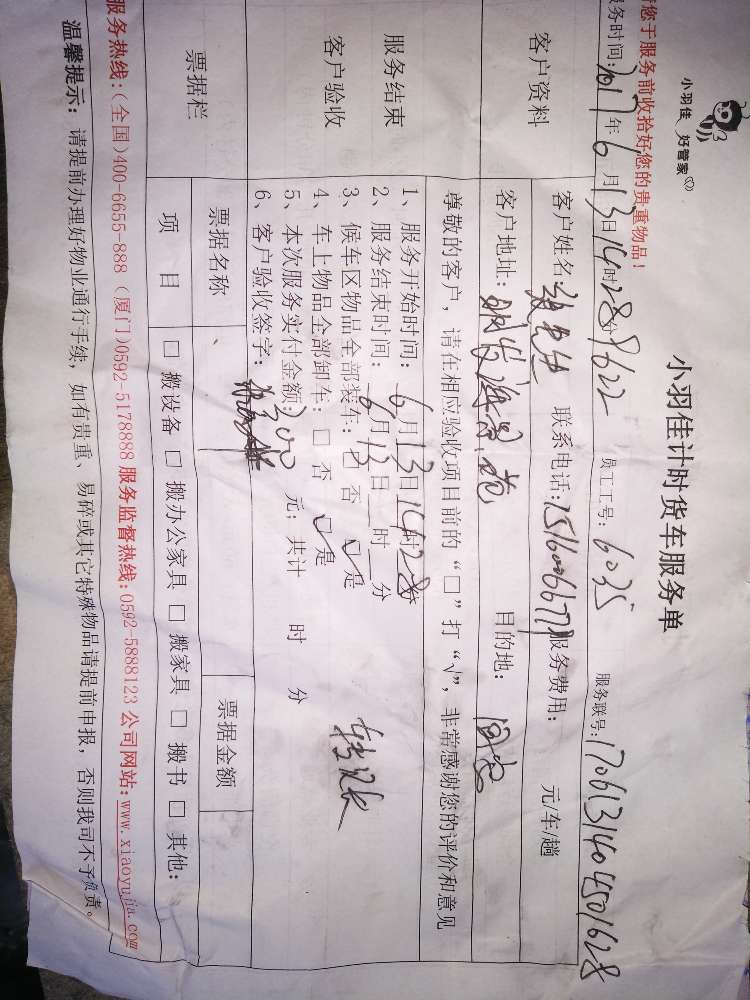 小羽佳 好管家
小羽佳计时货车服务单
您于服务前收拾好您的贵重物品!
务时间:2017年6月13日14时28分
员工工号: 6035
服务联号:
客户资料
客户姓名: 联系电话: 服务费用: 元/车/趟
客户地址: 目的地:
尊敬的客户，请在相应验收项目前的“□”打“√”，非常感谢您的评价和意见
服务结束
客户验收
1、服务开始时间: 6月13日14时28分
2、服务结束时间: 6月13日 时 分
3、候车区物品全部装车: □ 否 □是
4、车上物品全部卸车: □ 否 □是
5、本次服务实付金额: 300 元; 共计 时 分
6、客户验收签字:
转账
票据栏
票据名称 票据金额
项 目 □ 搬设备 □ 搬办公家具 □ 搬家具 □ 搬书 □ 其他:
服务热线:(全国)400-6655-888 (厦门)0592-5178888 服务监督热线:0592-5888123 公司网站:www.xiaoyujia.com
温馨提示: 请提前办理好物业通行手续，如有贵重、易碎或其它特殊物品请提前申报，否则我司不予负责。